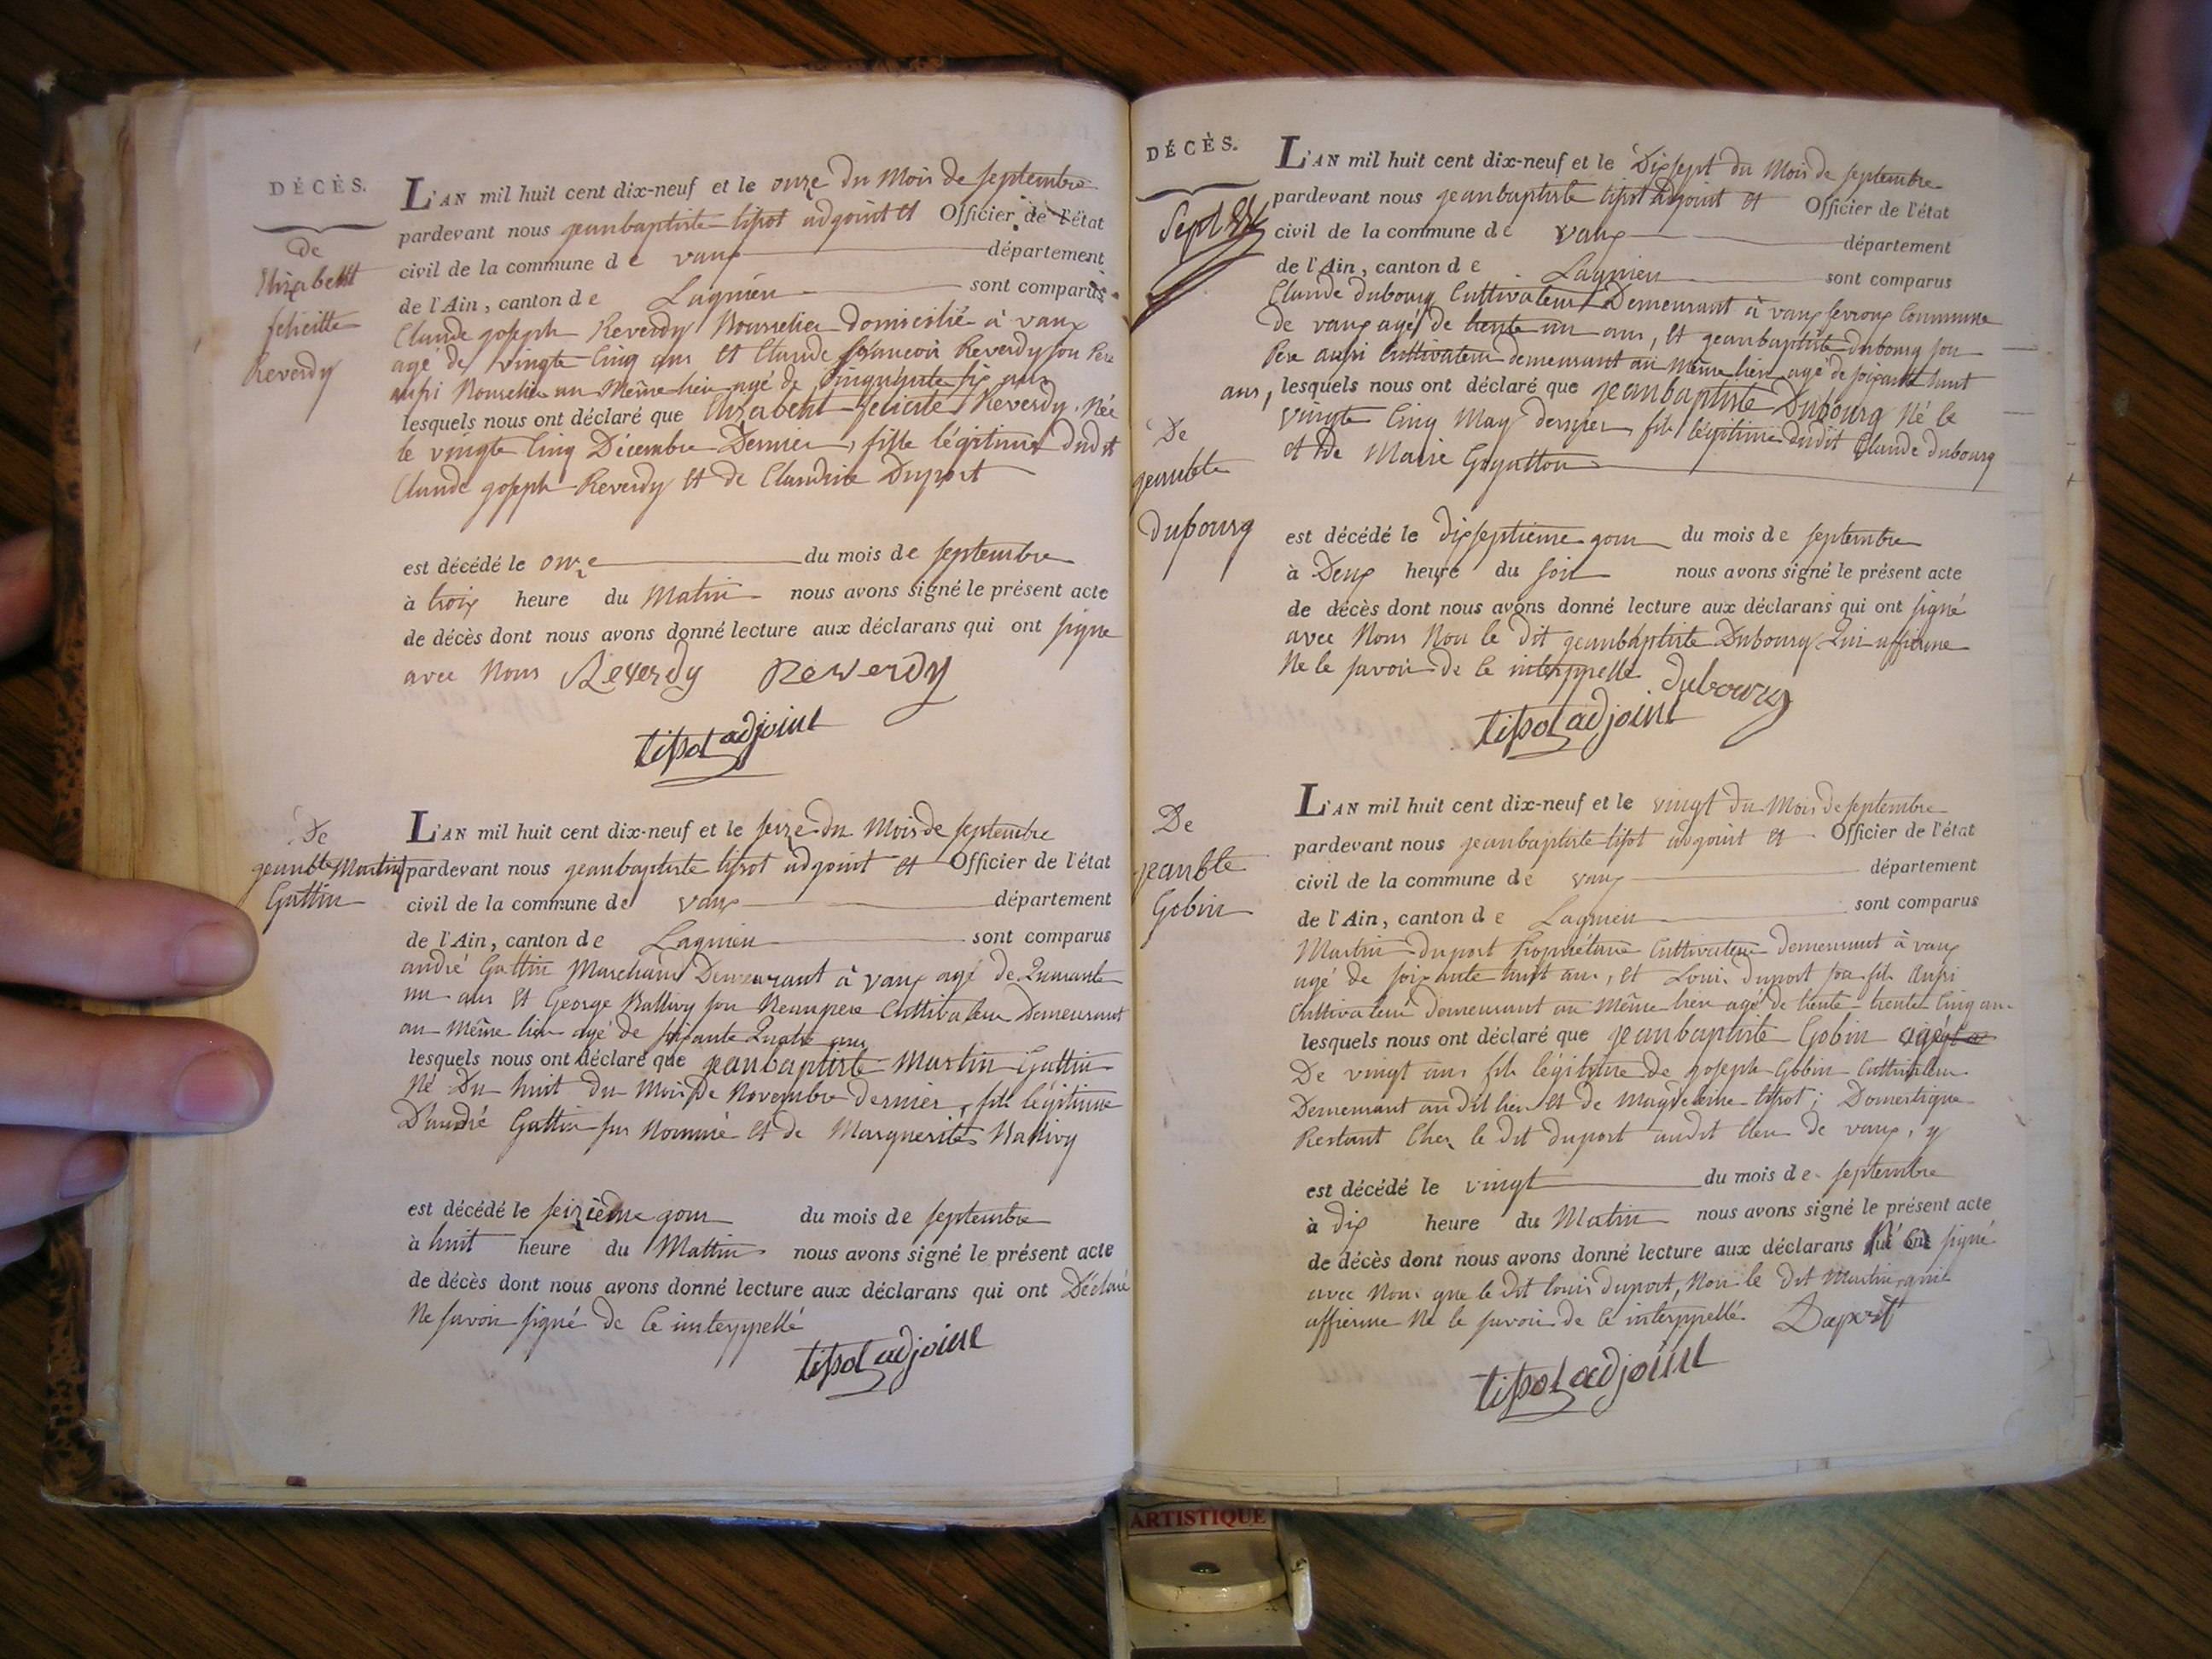 DÉCÈS.
de
Elizabeht
felicitte
Reverdy
L'AN mil huit cent dix-neuf et le onze du Mois de septembre
pardevant nous jeanbaptiste tissot adjoint et Officier de l'état
civil de la commune de vaux département
de l'Ain, canton de Lagnieu sont comparus
Claude joseph Reverdy Bourrelier domicilié à vaux
agé de vingte Cinq ans et Claude françois Reverdy son Pere
aussi Bourrelier au Même lieu agé de Cinquante six ans
lesquels nous ont déclaré que Elizabeht felicité Reverdy Née
le vingte Cinq Décembre Dernier, fille légitime dudit
Claude joseph Reverdy et de Claudine Duport
est décédé le onze du mois de septembre
à trois heure du Matin nous avons signé le présent acte
de décès dont nous avons donné lecture aux déclarans qui ont signe
avec Nous Reverdy Reverdy
tissot adjoint
De
jeanbte Martin
Guttin
L'AN mil huit cent dix-neuf et le seize du Mois de septembre
pardevant nous jeanbaptiste tissot adjoint et Officier de l'état
civil de la commune de vaux département
de l'Ain, canton de Lagnieu sont comparus
andré Guttin Marchand Demeurant à vaux agé de Quarante
un ans et George Ballivy son Beaupere Cultivateur Demeurant
au même lieu agé de soixante Quatre ans
lesquels nous ont déclaré que jeanbaptiste Martin Guttin
Né Du huit du Mois de Novembre dernier, fils légitime
D'andré Guttin sus Nommé et de Marguerite Ballivy
est décédé le seizième jour du mois de septembre
à huit heure du Mattin nous avons signé le présent acte
de décès dont nous avons donné lecture aux déclarans qui ont Déclaré
Ne savoir signé de Ce interppellé
tissot adjoint
DÉCÈS.
De
jeanbte
Dubourg
L'AN mil huit cent dix-neuf et le Dixsept du Mois de septembre
pardevant nous jeanbaptiste tissot adjoint et Officier de l'état
civil de la commune de vaux département
de l'Ain, canton de Lagnieu sont comparus
Claude dubourg Cultivateur Demeurant à vaux fevroux Commune
de vaux agé de trente un ans, et jeanbaptiste dubourg son
Pere aussi Cultivateur demeurant au même lieu agé de soixante huit
ans, lesquels nous ont déclaré que jeanbaptiste Dubourg Né le
vingte Cinq May dernier fils légitime dudit Claude dubourg
et de Marie
est décédé le dixseptieme jour du mois de septembre
à Deux heure du soir nous avons signé le présent acte
de décès dont nous avons donné lecture aux déclarans qui ont signé
avec Nous Non le dit jeanbaptiste Dubourg Qui affirme
Ne le savoir de Ce interppelle dubourg
tissot adjoint
De
jeanbte
Gobin
L'AN mil huit cent dix-neuf et le vingt du Mois de septembre
pardevant nous jeanbaptiste tissot adjoint et Officier de l'état
civil de la commune de vaux département
de l'Ain, canton de Lagnieu sont comparus
Martin duport Propriétaire Cultivateur demeurant à vaux
agé de soixante huit ans, et Louis duport son fils Aussi
Cultivateur demeurant au même lieu agé de trente trente Cinq ans
lesquels nous ont déclaré que jeanbaptiste Gobin
De vingt ans fils légitime de joseph Gobin Cultivateur
Demeurant au dit lieu et de Magdeleine tissot; Domestique
Restant Chez le dit duport audit lieu de vaux, y
est décédé le vingt du mois de septembre
à dix heure du Matin nous avons signé le présent acte
de décès dont nous avons donné lecture aux déclarans signé
avec Nous que le dit louis duport, Non le dit Martin qui
affirme Ne le savoir de Ce interppellé Duport
tissot adjoint
ARTISTIQUE